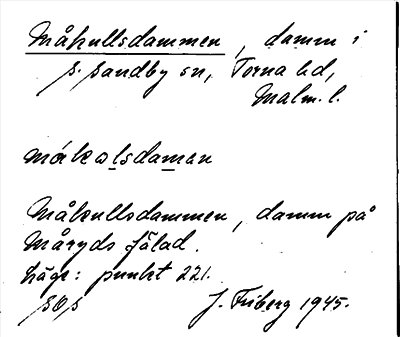 Måkullsdammen, damm i
S. Sandby sn, Torna hd,
Malm. l.
måkəlsdaman
Måkullsdammen, damm på
Måryds fälad.
Läge: punkt 221.
SOS J. Friberg 1945.